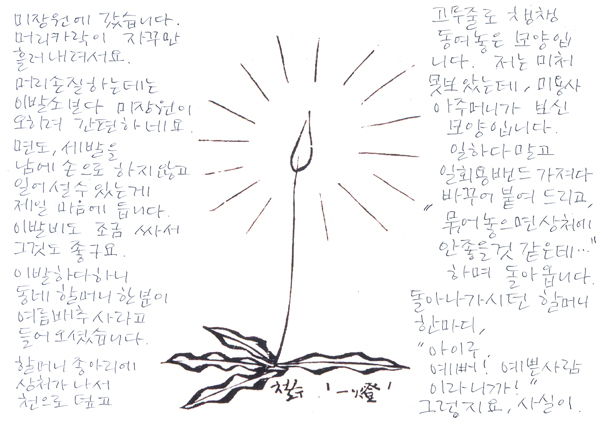 미장원에 갔습니다.
머리카락이 자꾸만
흘러내려서요.
머리손질하는데는
이발소보다 미장원이
오히려 간편하네요.
면도, 세발을
남에 손으로 하지않고
일어설수있는게
제일 마음에 듭니다.
이발비도 조금 싸서
그것도 좋구요.
이발하다하니
동네 할머니 한분이
여름배추 사라고
들어오셨습니다.
할머니 종아리에
상처가 나서
천으로 덮고
고무줄로 챙챙
동여놓은 모양입
니다. 저는 미처
못보았는데, 미용사
아주머니가 보신
모양입니다.
일하다말고
일회용밴드 가져다
바꾸어 붙여 드리고,
"묶어놓으면 상처에
안좋을것 같은데…"
하며 돌아옵니다.
돌아나가시던 할머니
한마디,
"아이구,
예뻐! 예쁜사람
이라니까!"
그렇지요, 사실이.
철수 '一燈'